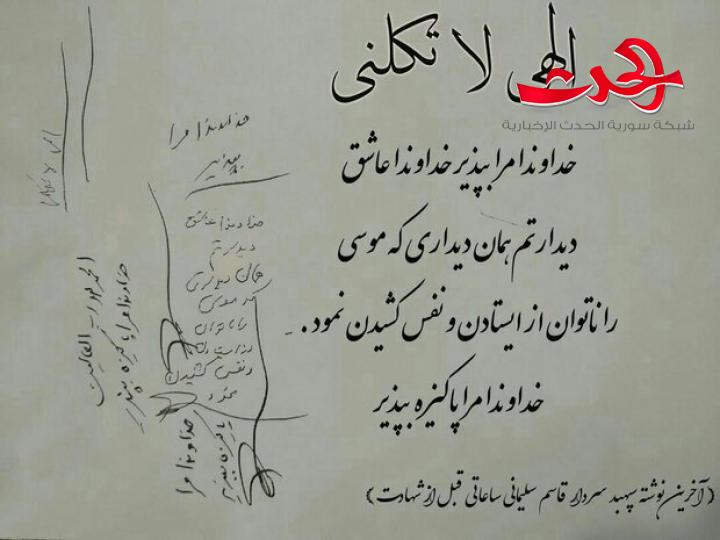 الهی لا تکلنی
الحدث
شبكة سورية الحدث الإخبارية
خداوندا مرا بپذیر خداوندا عاشق
دیدارتم همان دیداری که موسی
را ناتوان از ایستادن و نفس کشیدن نمود.
خداوندا مرا پاکیزه بپذیر
(آخرین نوشته سپهبد سردار قاسم سلیمانی ساعاتی قبل از شهادت)
خداوندا مرا
بپذیر
خداوندا عاشق
دیدارتم
همان دیداری
که موسی
را ناتوان
و نفس کشیدن
نمود
خداوندا مرا
پاکیزه بپذیر
الحمد لله رب العالمین
خداوندا مرا پاکیزه بپذیر
الهی لا تکلنی